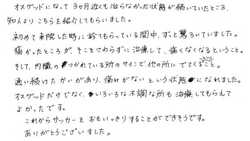 オスグッドになって3ヶ月近くも治らなかった状態が続いていたところ、
知人よりこちらを紹介してもらいました。
初めて来院した時に診てもらっている間中、ずっと驚いていました。
痛かったところが、そこでさわらずに治療して、痛くなくなるということ。
そして、内臓のつかれている所のサインで他の所にでてくること。
通い続けたかいがあり、痛みがないという状態になれました。
オスグッドだけでなく、いろいろな不調な所も治療してもらえて
よかったです。
これからサッカーをおもいっきりすることができそうです。
ありがとうございました。